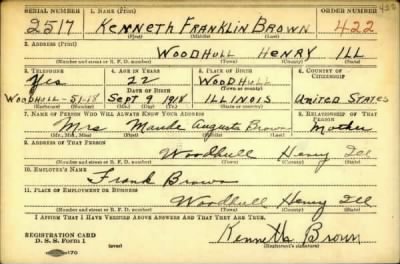 SERIAL NUMBER 1. NAME (Print) ORDER NUMBER
2517 KENNETH FRANKLIN BROWN 422
(First) (Middle) (Last)
2. ADDRESS (Print)
WOODHULL HENRY ILL
(Number and street or R. F. D. number) (Town) (County) (State)
3. TELEPHONE 4. AGE IN YEARS 5. PLACE OF BIRTH 6. COUNTRY OF CITIZENSHIP
Yes 22 WOODHULL
DATE OF BIRTH (Town or county)
WOODHULL-51-18 SEPT 9 1918 ILLINOIS UNITED STATES
(Exchange) (Number) (Mo.) (Day) (Yr.) (State or country)
7. NAME OF PERSON WHO WILL ALWAYS KNOW YOUR ADDRESS 8. RELATIONSHIP OF THAT PERSON
Mrs Maude Augusta Brown Mother
(Mr., Mrs., Miss) (First) (Middle) (Last)
9. ADDRESS OF THAT PERSON
Woodhull Henry Ill
(Number and street or R. F. D. number) (Town) (County) (State)
10. EMPLOYER'S NAME
Frank Brown
11. PLACE OF EMPLOYMENT OR BUSINESS
Woodhull Henry Ill
(Number and street or R. F. D. number) (Town) (County) (State)
I AFFIRM THAT I HAVE VERIFIED ABOVE ANSWERS AND THAT THEY ARE TRUE.
REGISTRATION CARD
D. S. S. Form 1
Kenneth Brown
(Registrant's signature)